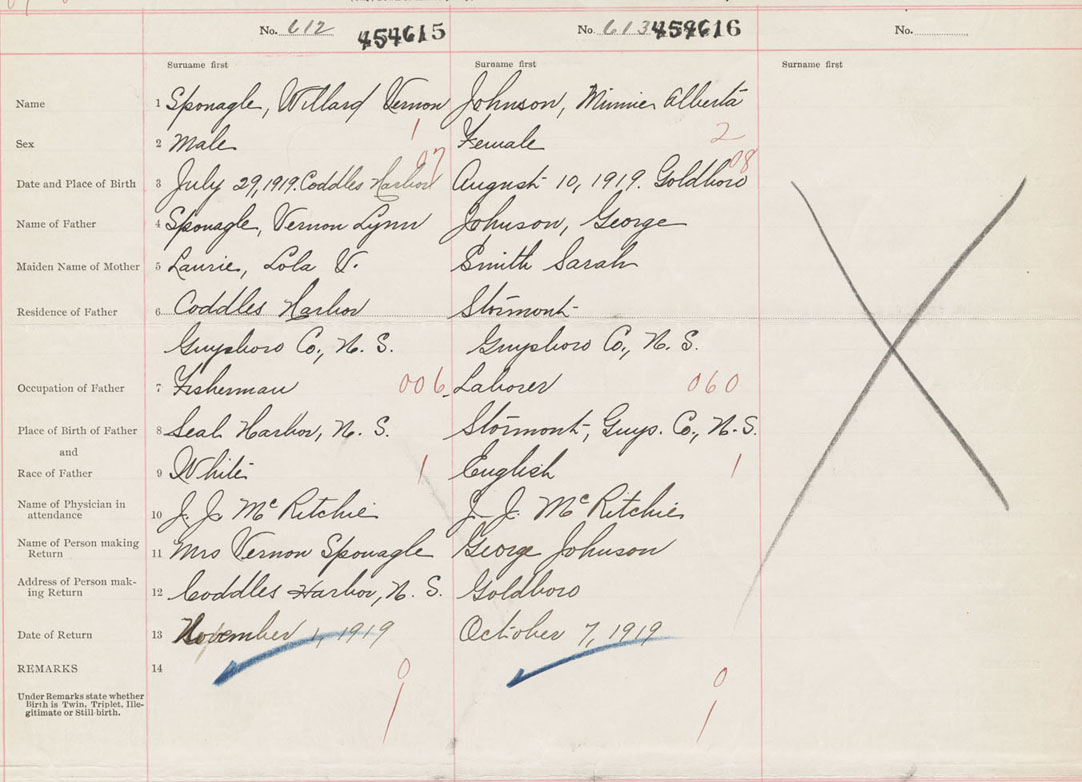 No. 612 454615 No. 613 454616 No.
Surname first Surname first Surname first
Name 1 Sponagle, Willard Vernon Johnson, Minnie Alberta
Sex 2 Male 1 Female 2
Date and Place of Birth 3 July 29, 1919. Coddles Harbor 07 August 10, 1919. Goldboro 08
Name of Father 4 Sponagle, Vernon Lynn Johnson, George
Maiden Name of Mother 5 Laurie, Lola V. Smith Sarah
Residence of Father 6 Coddles Harbor Stormont
Guysboro Co., N. S. Guysboro Co., N. S.
Occupation of Father 7 Fisherman 006 Laborer 060
Place of Birth of Father 8 Seal Harbor, N. S. Stormont, Guys. Co., N. S.
and
Race of Father 9 White 1 English 1
Name of Physician in
attendance 10 J. J. McRitchie J. J. McRitchie
Name of Person making
Return 11 Mrs Vernon Sponagle George Johnson
Address of Person mak-
ing Return 12 Coddles Harbor, N. S. Goldboro
Date of Return 13 November 1, 1919 October 7, 1919
REMARKS 14 0 0
Under Remarks state whether
Birth is Twin, Triplet, Ille-
gitimate or Still-birth. 1 1